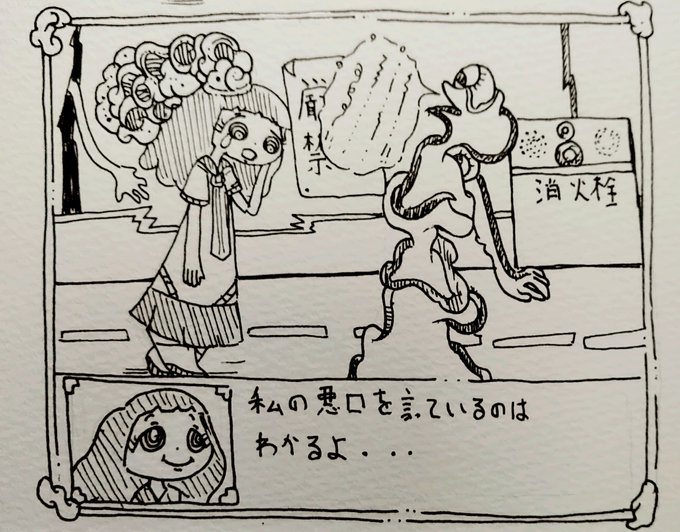 消火栓
私の悪口を言っているのは
わかるよ・・・